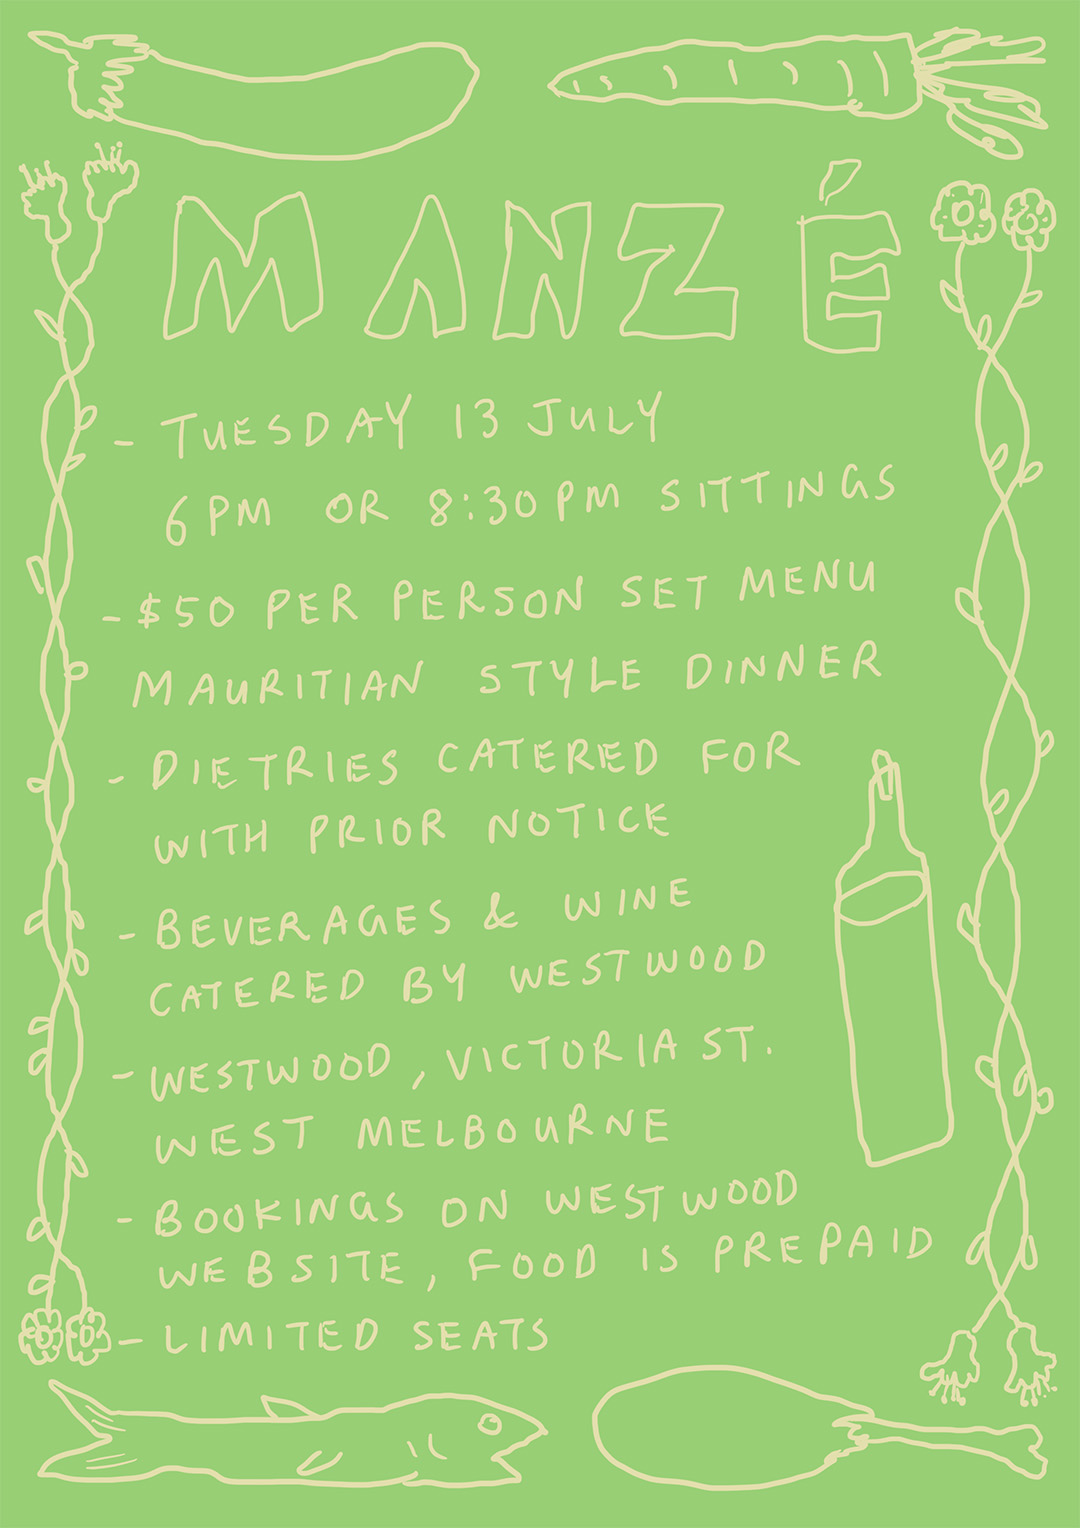 MANZÉ
- TUESDAY 13 JULY
6PM OR 8:30PM SITTINGS
- $50 PER PERSON SET MENU
MAURITIAN STYLE DINNER
- DIETRIES CATERED FOR
WITH PRIOR NOTICE
- BEVERAGES & WINE
CATERED BY WESTWOOD
- WESTWOOD, VICTORIA ST.
WEST MELBOURNE
- BOOKINGS ON WESTWOOD
WEBSITE, FOOD IS PREPAID
- LIMITED SEATS